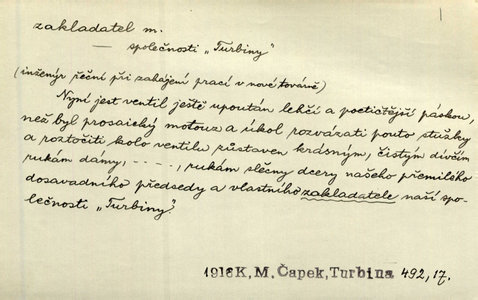 zakladatel m.
— společnosti „Turbiny"
(inženýr řeční při zahájení prací v nové továrně)
Nyní jest ventil ještě upoután lehčí a poetičtější páskou,
než byl prosaický motouz a úkol rozvázati pouto stužky
a roztočiti kolo ventilu zůstaven krásným, čistým dívčím
rukám damy, - - - -, rukám slečny dcery našeho přemilého
dosavadního předsedy a vlastního zakladatele naší spo-
lečnosti „Turbiny".
1916K, M. Čapek, Turbina 492, 17.